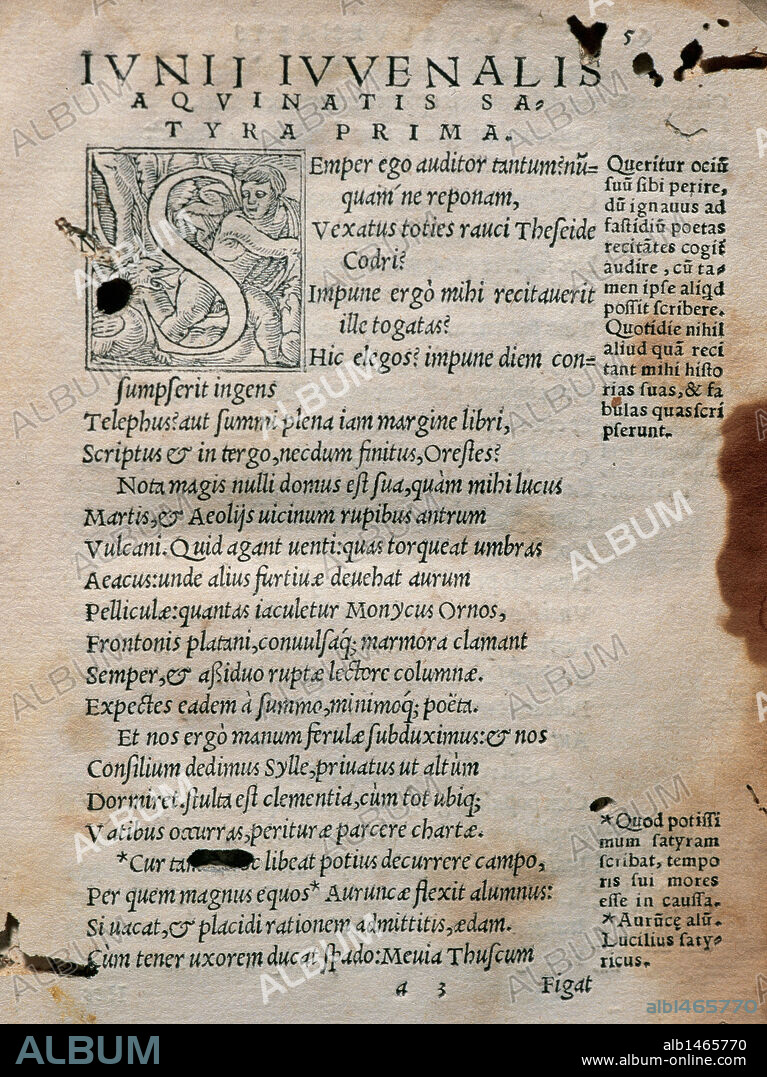 5
IVNIJ IVVENALIS
AQVINATIS SA-
TYRA PRIMA.
SEmper ego auditor tantum? nū=
quam´ne reponam,
Vexatus toties rauci Theseide
Codri?
Impune ergò mihi recitauerit
ille togatas?
Hic elegos? impune diem con=
sumpserit ingens
Telephus? aut summi plena iam margine libri,
Scriptus & in tergo, necdum finitus, Orestes?
Nota magis nulli domus est sua, quàm mihi lucus
Martis, & Aeolijs uicinum rupibus antrum
Vulcani. Quid agant uenti: quas torqueat umbras
Aeacus: unde alius furtiuæ deuehat aurum
Pelliculæ: quantas iaculetur Monycus Ornos,
Frontonis platani, conuulsaq́; marmora clamant
Semper, & aßiduo ruptæ lectore columnæ.
Expectes eadem à summo, minimoq́; poëta.
Et nos ergò manum ferulæ subduximus: & nos
Consilium dedimus Syllę, priuatus ut altùm
Dormiret. stulta est clementia, cùm tot ubiq;
Vatibus occurras, perituræ parcere chartæ.
*Cur libeat potius decurrere campo,
Per quem magnus equos* Auruncæ flexit alumnus:
Si uacat, & placidi rationem admittitis, ædam.
Cùm tener uxorem ducat spado: Meuia Thuscum
a 3 Figat
Queritur ociū
suū sibi perire,
dū ignauus ad
fastidiū poetas
recitātes cogit̄
audire, cū ta-
men ipse aliqd
possit scribere.
Quotidie nihil
aliud quā reci
tant mihi histo
rias suas, & fa
bulas quas scri
pserunt.
*Quod potissi
mum satyram
scribat, tempo
ris sui mores
esse in caussa.
*Aurūcę alū.
Lucilius saty-
ricus.
ALBUM
alb1465770
ALBUM
alb1465770
www.album-online.com